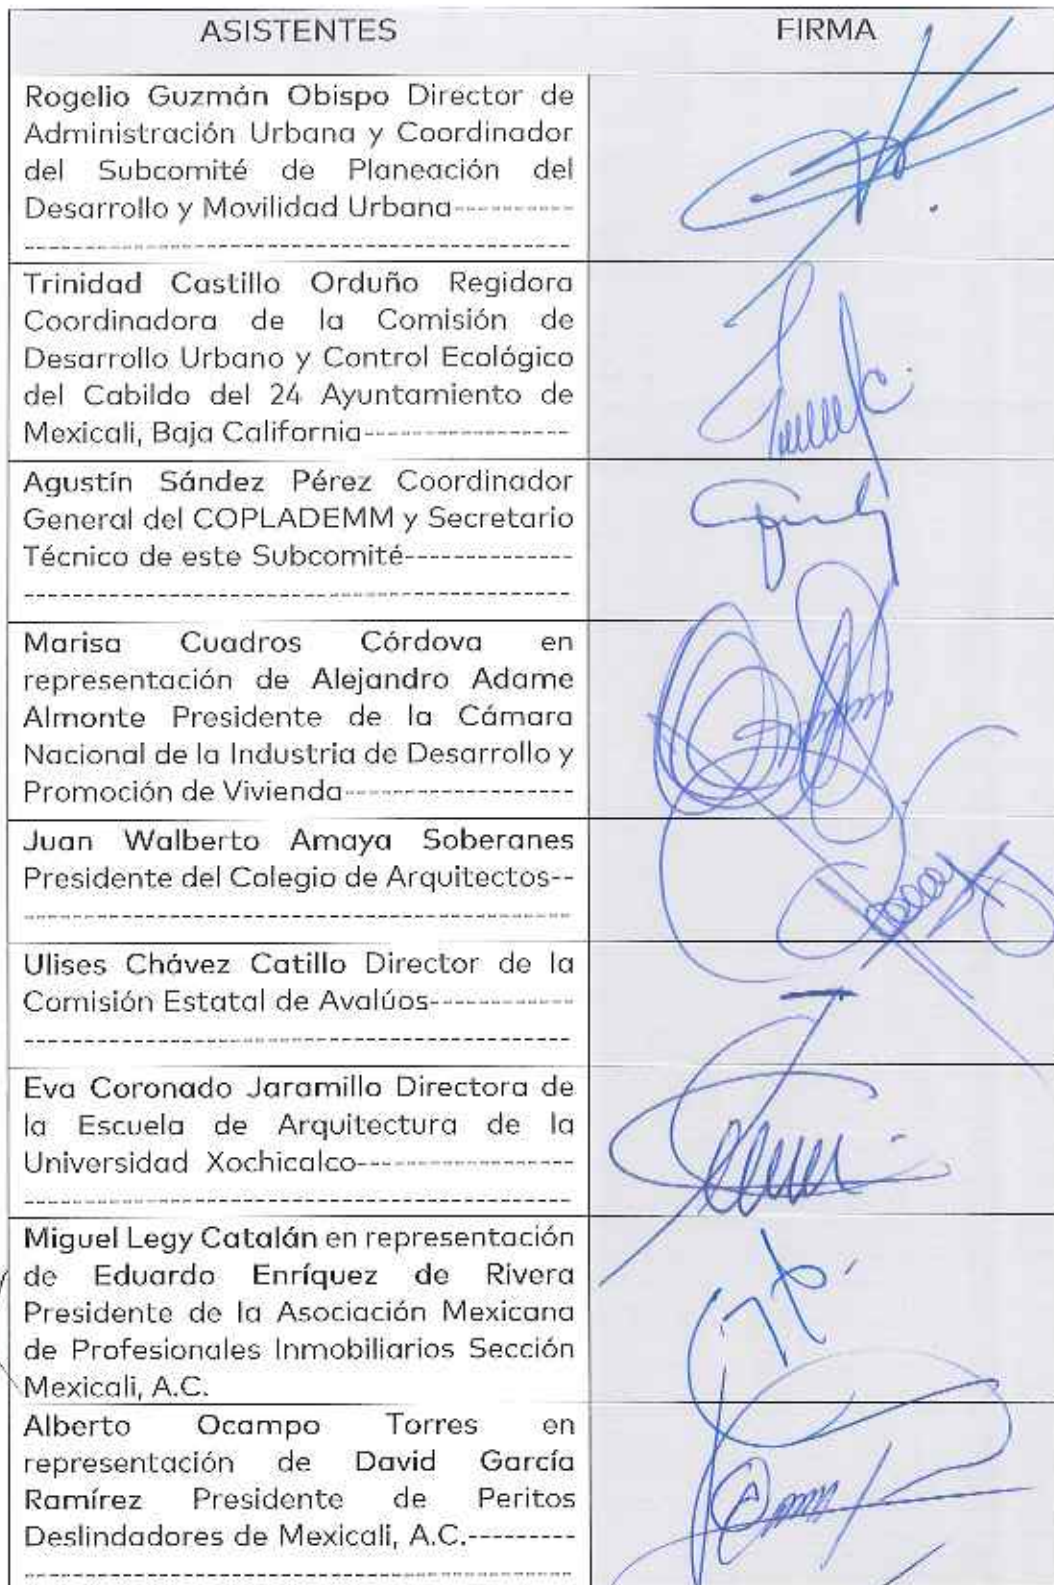 ASISTENTES FIRMA
Rogelio Guzmán Obispo Director de
Administración Urbana y Coordinador
del Subcomité de Planeación del
Desarrollo y Movilidad Urbana----------
----------------------------------------
Trinidad Castillo Orduño Regidora
Coordinadora de la Comisión de
Desarrollo Urbano y Control Ecológico
del Cabildo del 24 Ayuntamiento de
Mexicali, Baja California-----------------
Agustín Sández Pérez Coordinador
General del COPLADEMM y Secretario
Técnico de este Subcomité-------------
----------------------------------------
Marisa Cuadros Córdova en
representación de Alejandro Adame
Almonte Presidente de la Cámara
Nacional de la Industria de Desarrollo y
Promoción de Vivienda------------------
Juan Walberto Amaya Soberanes
Presidente del Colegio de Arquitectos--
----------------------------------------
Ulises Chávez Catillo Director de la
Comisión Estatal de Avalúos------------
----------------------------------------
Eva Coronado Jaramillo Directora de
la Escuela de Arquitectura de la
Universidad Xochicalco-----------------
----------------------------------------
Miguel Legy Catalán en representación
de Eduardo Enríquez de Rivera
Presidente de la Asociación Mexicana
de Profesionales Inmobiliarios Sección
Mexicali, A.C.
Alberto Ocampo Torres en
representación de David García
Ramírez Presidente de Peritos
Deslindadores de Mexicali, A.C.--------
----------------------------------------